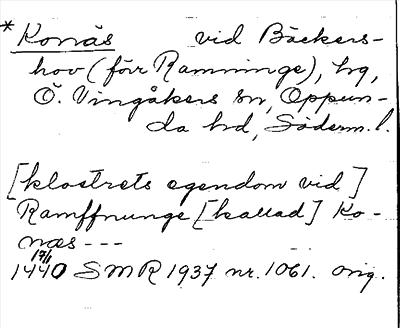 * Konäs vid Bäckers-
hov (förr Ramninge), hg,
Ö. Vingåkers sn, Oppun-
da hd, Söderm. l.
[klostrets egendom vid]
Ramffnunge [kallad] Ko-
næs ---
17/1
1440 SMR 1937 nr. 1061. orig.